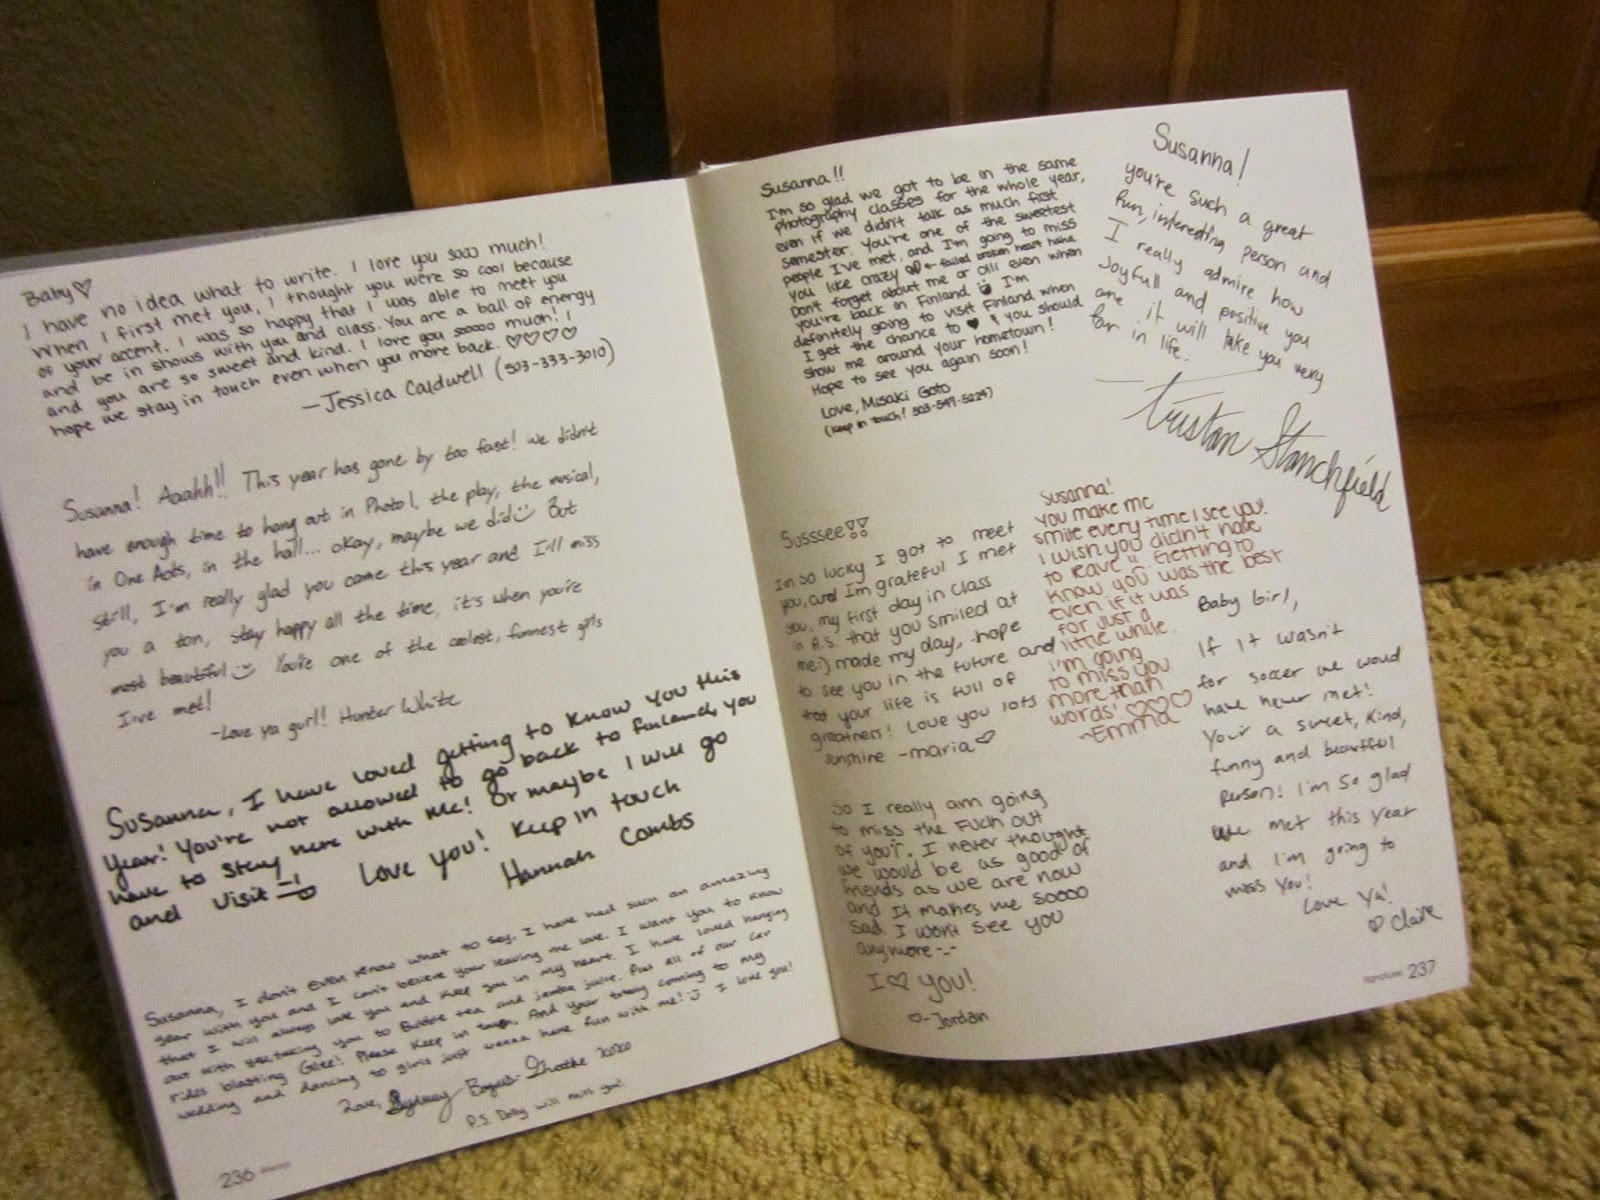 Baby ♡
I have no idea what to write. I love you sooo much!
When I first met you, I thought you were so cool because
of your accent. I was so happy that I was able to meet you
and be in shows with you and class. You are a ball of energy
and you are so sweet and kind. I love you sooooo much! I
hope we stay in touch even when you more back. ♡♡♡♡
—Jessica Caldwell (503-333-3010)
Susanna! Aaahh!! This year has gone by too fast! We didn't
have enough time to hang out in Photo 1, the play, the musical,
in One Acts, in the hall... okay, maybe we did But
still, I'm really glad you came this year and I'll miss
you a ton, stay happy all the time, it's when you're
most beautiful You're one of the coolest, funnest girls
I've met!
-Love ya gurl! Hunter White
Susanna, I have loved getting to know you this
year! You're not allowed to go back to finland, you
have to stay here with me! Or maybe I will go
and visit Love you! Keep in touch
Hannah Combs
Susanna, I don't even know what to say. I have had such an amazing
year with you and I can't believe your leaving me love. I want you to know
that I will always love you and keep you in my heart. I have loved hanging
out with you, taking you to Bubble tea and jamba juice. Plus all of our car
rides blasting Glee! Please keep in touch. And your coming to my
wedding and dancing to girls just wanna have fun with me! I love you!
Love, Sydney xoxo
P.S. Dolly will miss you!
236
Susanna!!
I'm so glad we got to be in the same
photography classes for the whole year,
even if we didn't talk as much first
semester. You're one of the sweetest
people I've met, and I'm going to miss
you like crazy ← failed broken heart haha
Don't forget about me or OIII even when
you're back in Finland. I'm
definitely going to visit Finland when
I get the chance to ♥ & you should
show me around your hometown!
Hope to see you again soon!
Love, Misaki Goto
(keep in touch! 503-549-5224)
Susanna!
you're such a great
fun, interesting person and
I really admire how
Joyfull and positive you
are it will take you very
far in life.
Tristan Stanchfield
Susssee!!
Im so lucky I got to meet
you, and I'm grateful I met
you, my first day in class
in A.S. that you smiled at
me:) made my day, hope
to see you in the future and
your life is full of
greatness! Love you lots
sunshine -maria ♡
Susanna!
You make me
smile every time I see you!
I wish you didn't have
to leave!! Getting to
know you was the best
even if it was
for just a
little while.
I'm going
to miss you
more than
words! ♡♡♡
~Emma
Baby Girl,
If it wasn't
for soccer we would
have never met!
Your a sweet, kind,
funny and beautiful
person! I'm so glad
we met this year
and I'm going to
miss you!
Love Ya!
♡ Claire
So I really am going
to miss the Fuch out
of you. I never thought
we would be as good of
friends as we are now
and It makes me soooo
sad I wont see you
anymore -.-
I ♡ you!
♡-Jordan
Signatures 237